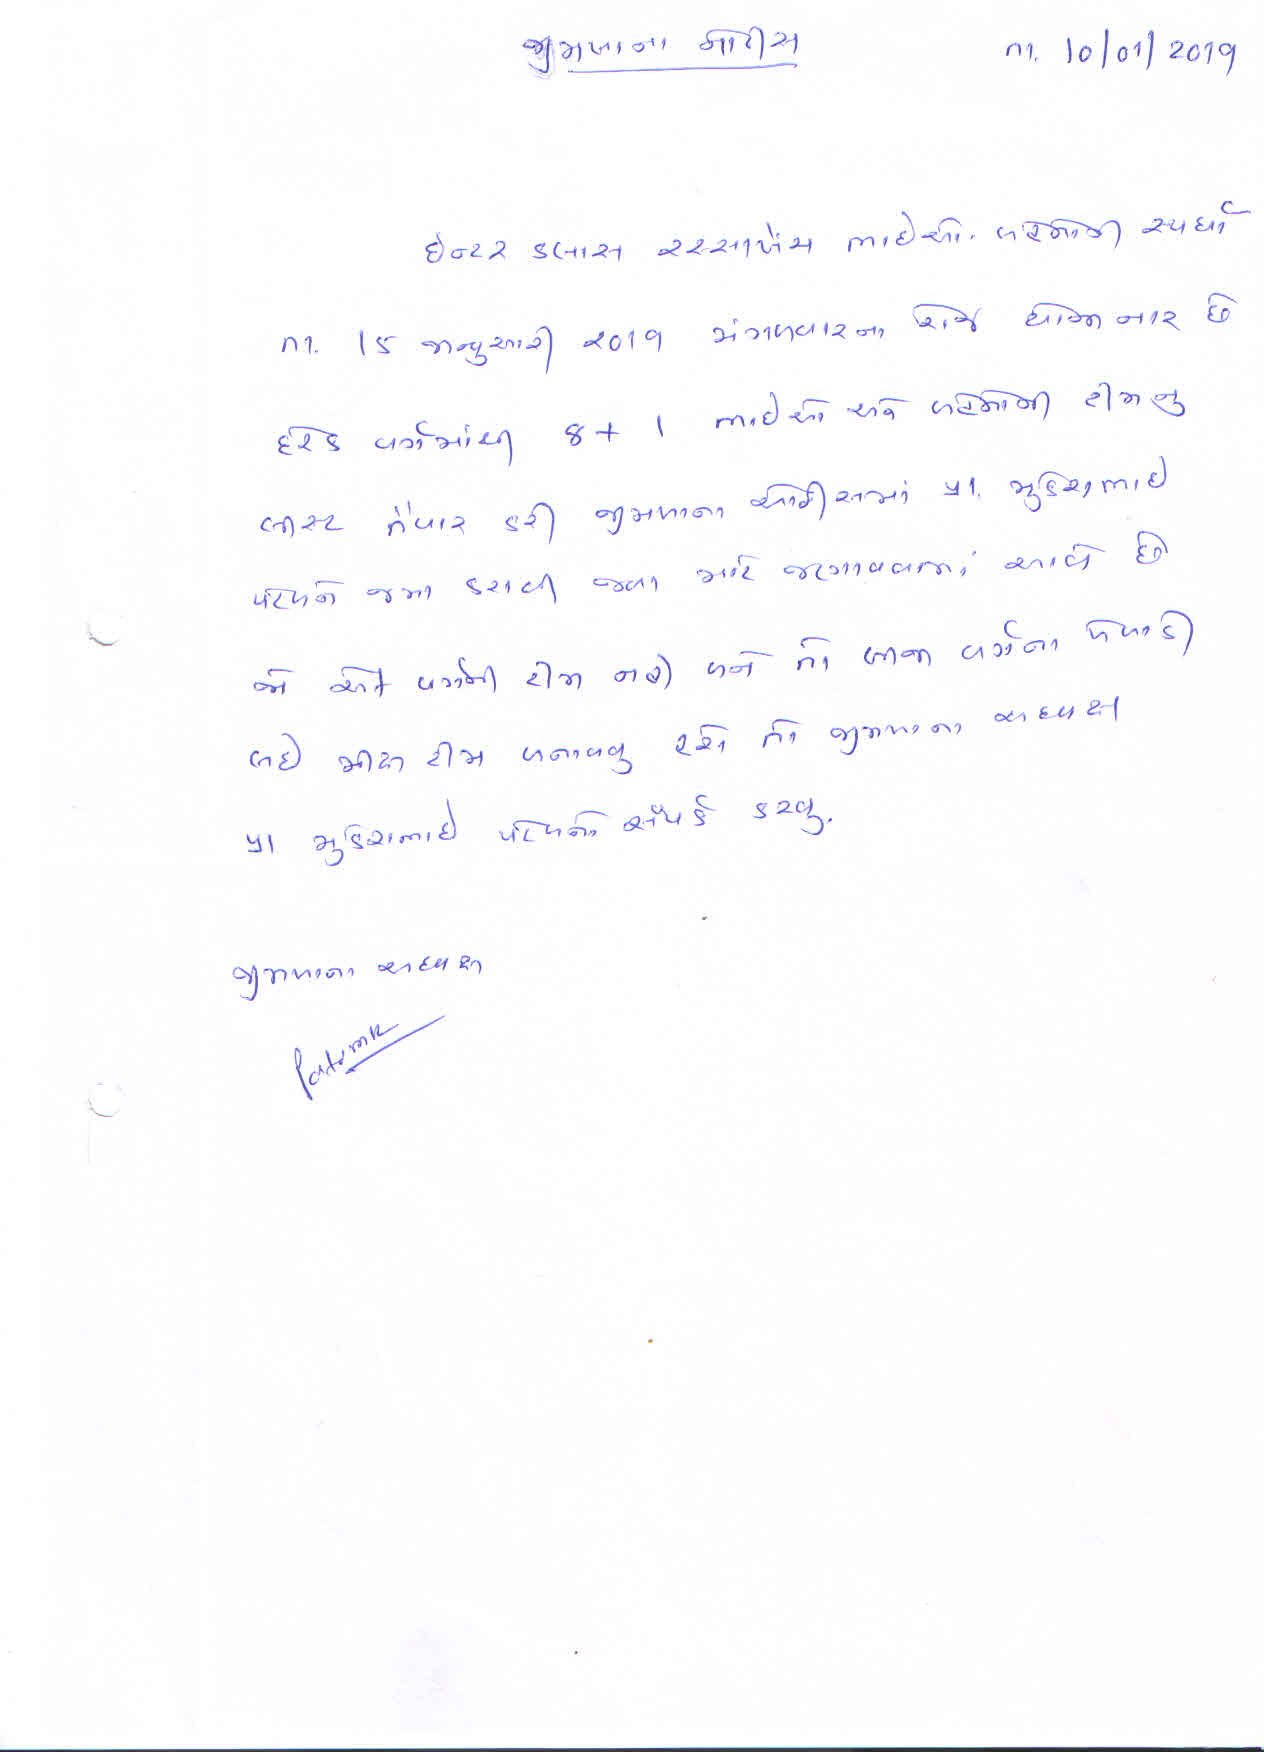 જીમખાના નોટીસ તા. 10/01/2019
ઇન્ટર કલાસ રસ્સાખેંચ ભાઇઓ. બહેનોની સ્પર્ધા
તા. 15 જાન્યુઆરી ૨૦19 મંગળવારના રોજ યોજાનાર છે
દરેક વર્ગમાંથી 8 + 1 ભાઇઓ અને બહેનોની ટીમનુ
લીસ્ટ તૈયાર કરી જીમખાના ઓફીસમાં પ્રા. મુકેશભાઇ
પટેલને જમા કરાવી જવા માટે જણાવવામાં આવે છે
જો કોઇ વર્ગની ટીમ નહી બને તો બીજા વર્ગના ખેલાડી
લઇ ટીમ બનાવવુ હશે તો જીમખાના અધ્યક્ષ
પ્રા મુકેશભાઇ પટેલનો સંપર્ક કરવુ.
જીમખાના અધ્યક્ષ